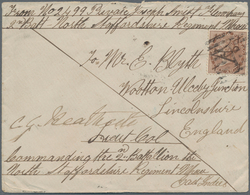 From No 2499 Private Joseph Smith
2nd Batt North Staffordshire Regiment
To Mr E. Blyth
Wootton Ulceby Junction
Lincolnshire
England
C. G. Heathcote
Lieut Col
Commanding the 2n Battalion the
North Staffordshire Regiment
East Indies